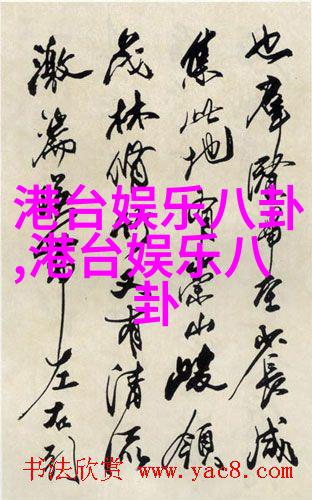 也羣賢畢至少長咸
集此地有崇山峻領
茂林脩竹又有清流
激湍映帶左右引
港台娱乐八卦
,港台娱乐八
卦
书法欣赏 www.yac8.com